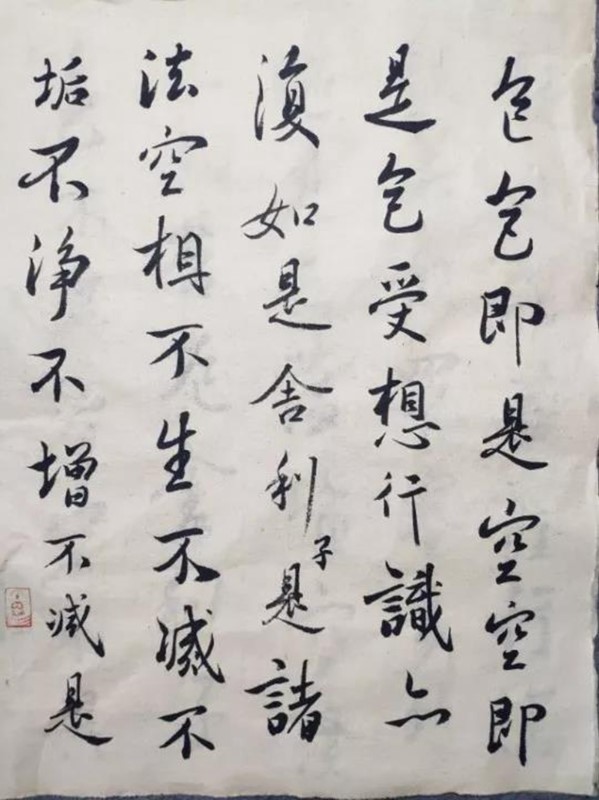 色色即是空空即
是色受想行識亦
復如是舍利子是諸
法空相不生不滅不
垢不淨不增不減是